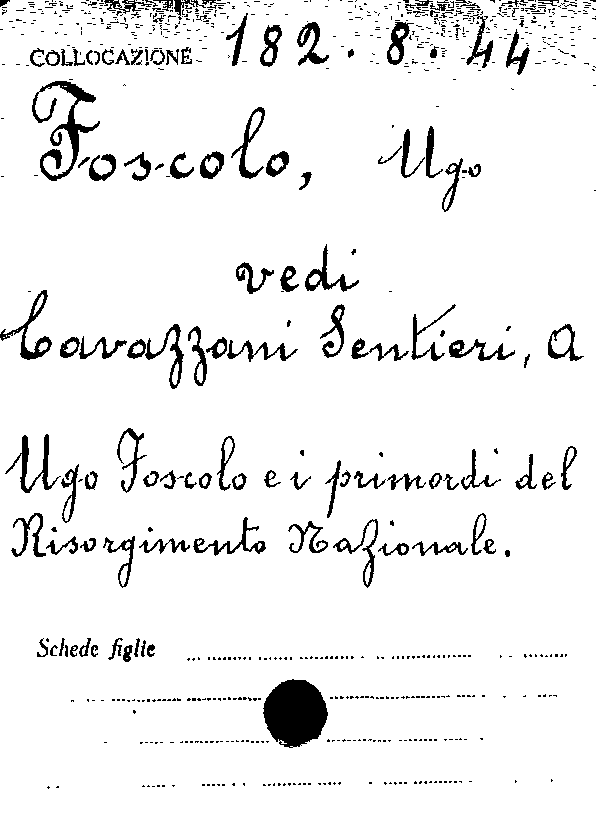 COLLOCAZIONE 182.8.44
Foscolo, Ugo
vedi
Cavazzani Sentieri, A
Ugo Foscolo e i primordi del
Risorgimento Nazionale.
Schede figlie